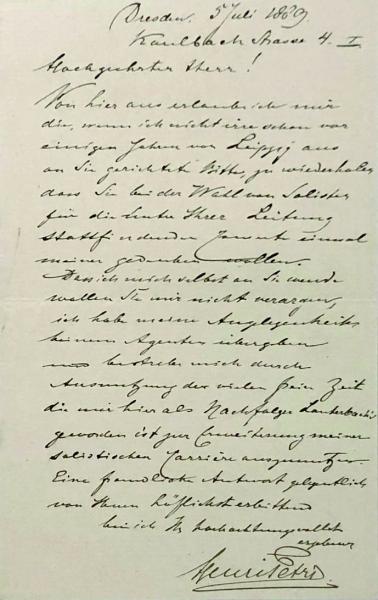 Dresden, 5 Juli 1889.
Kaulbach Strasse 4. I
Hochgeehrter Herr!
Von hier aus erlaube ich mir
die, wenn ich nicht irre schon vor
einigen Jahren von Leipzig aus
an Sie gerichtete Bitte, zu wiederholen
dass Sie bei der Wahl von Solisten
für die unter Ihrer Leitung
stattfindenden Concerte einmal
meiner gedenken wollen.
Dass ich mich selbst an Sie wende
wollen Sie mir nicht verargen,
ich habe meine Angelegenheiten
keinem Agenten übergeben
und bestrebe mich durch
Ausnutzung der vielen freien Zeit
die mir hier als Nachfolger Lauterbach's
geworden ist zur Erweiterung meiner
solistischen Carrière
Eine freundliche Antwort gelegentlich
von Ihnen höflichst erbittend
bin ich Ihr hochachtungsvollst
ergebener
Henri Petri